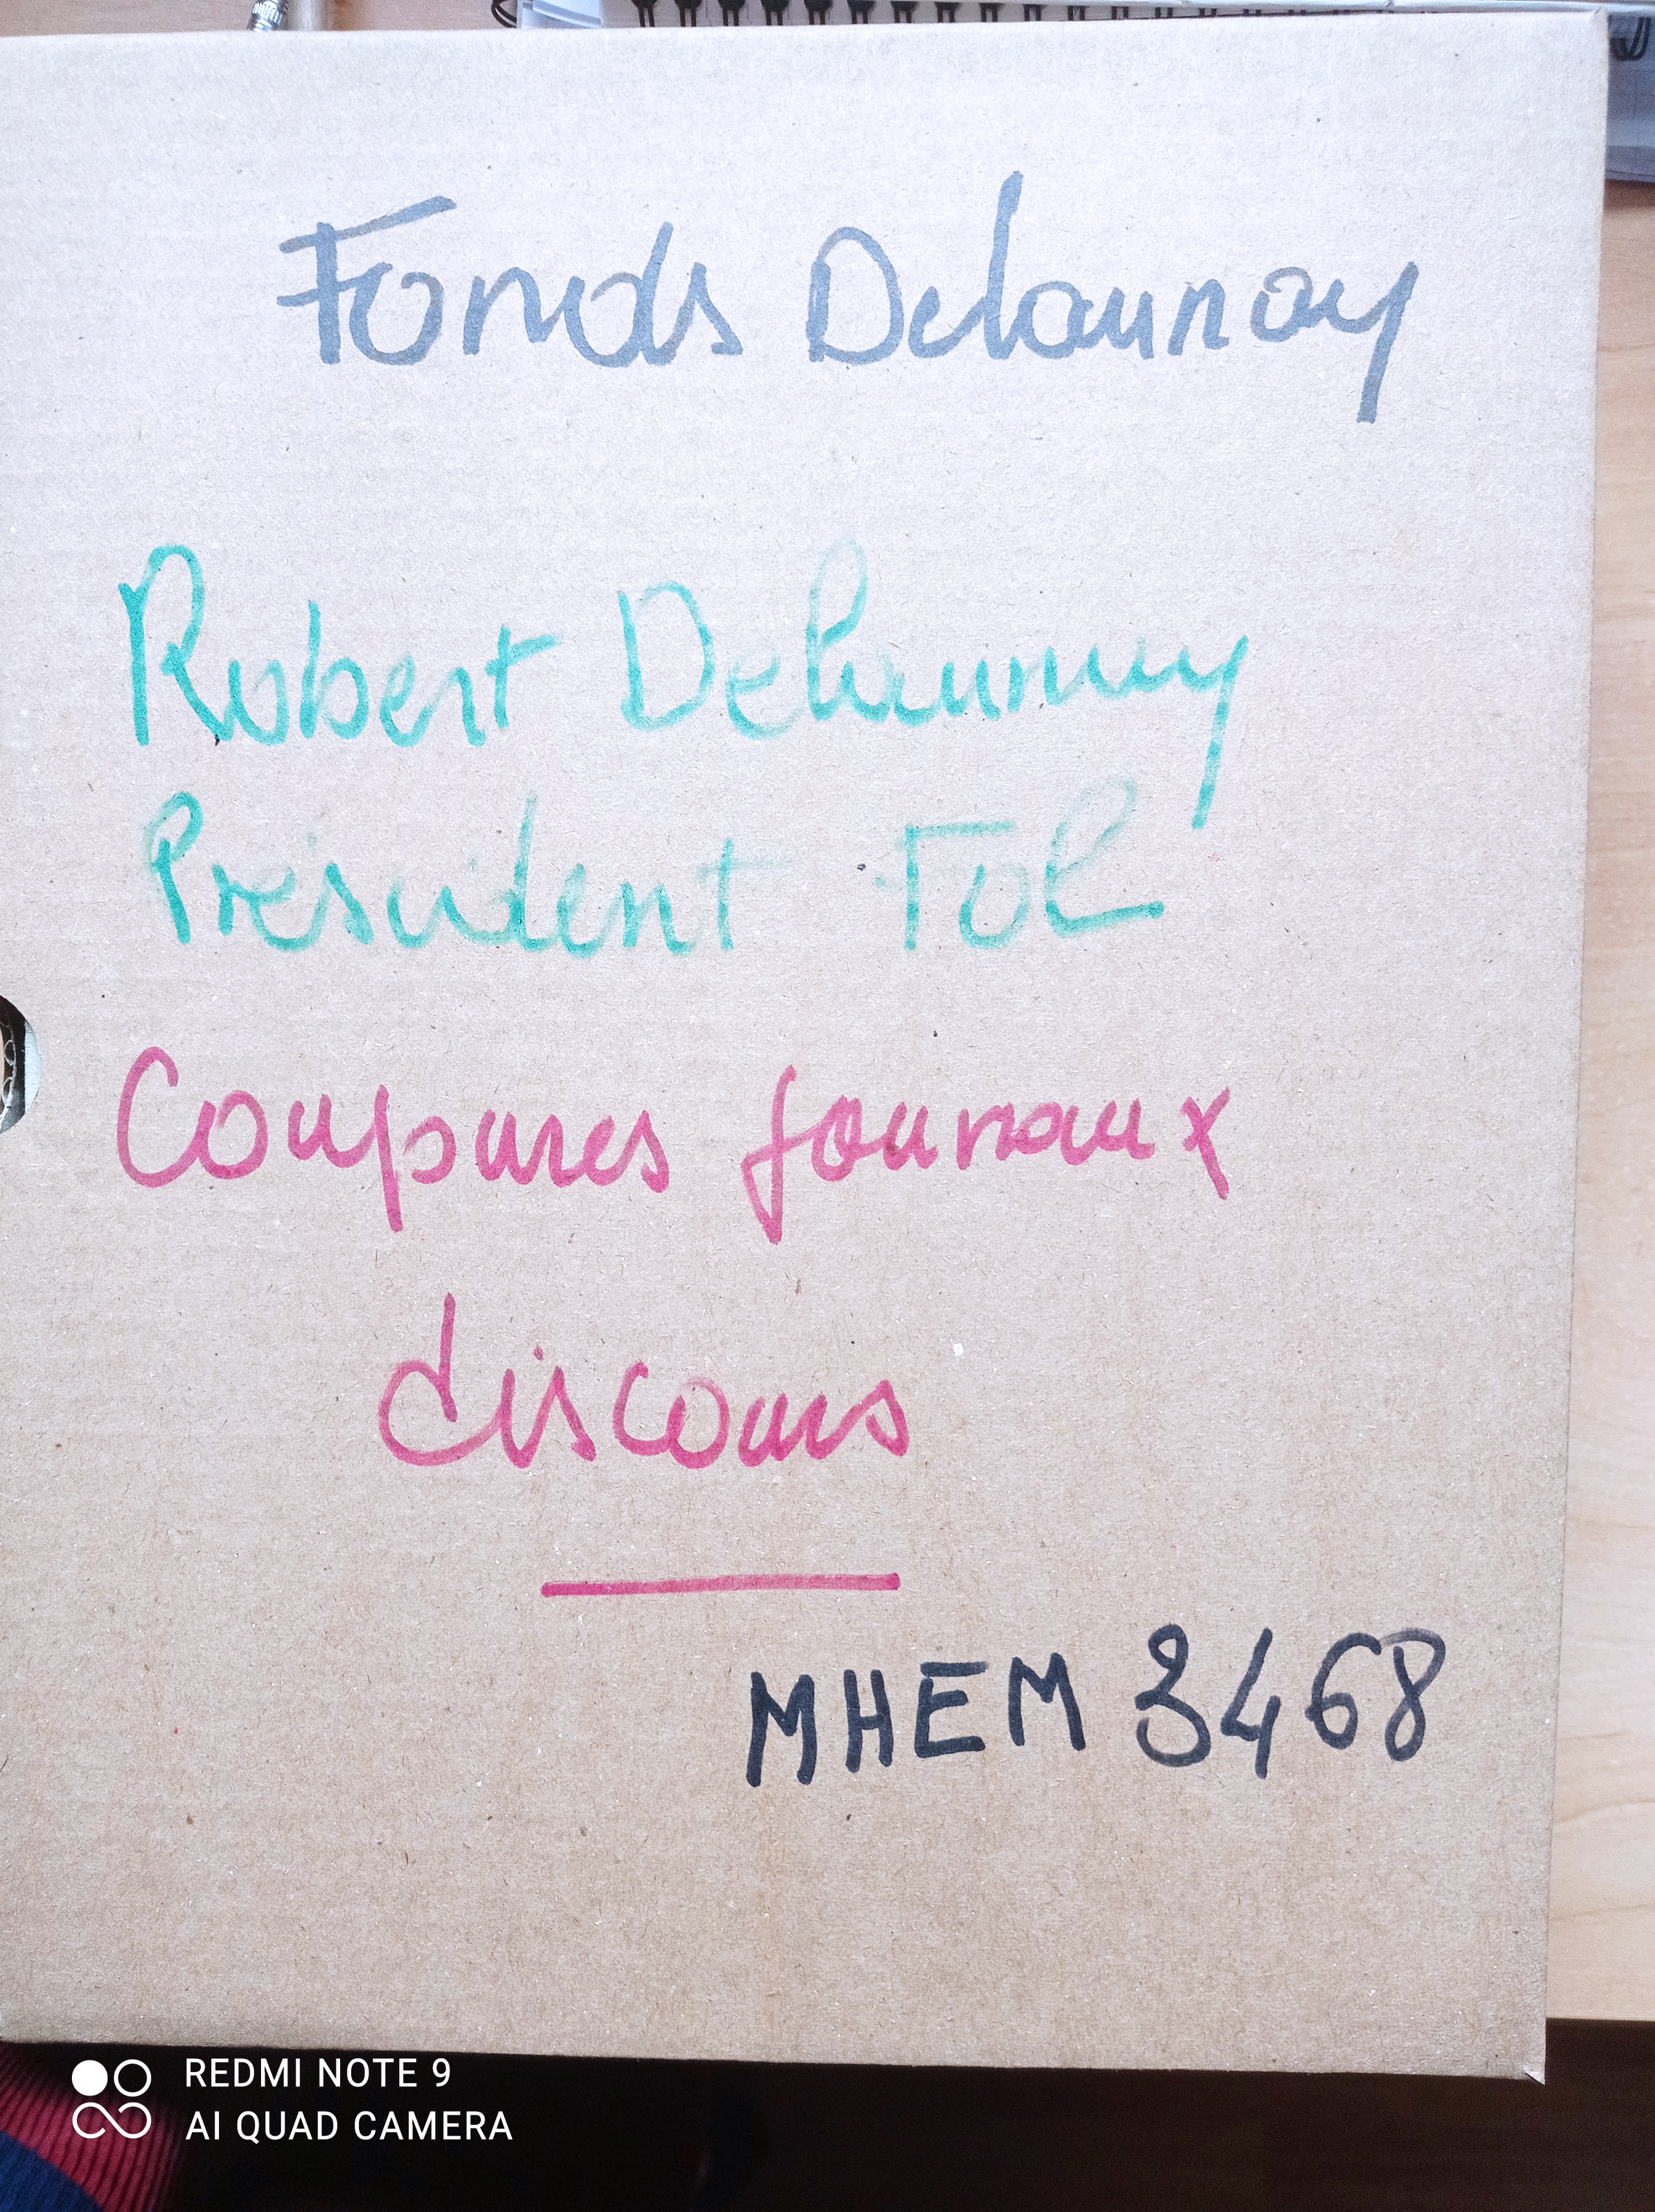 Fonds Delaunay
Robert Delaunay
Président FOL
Coupures journaux
discours
MHEM 3468
REDMI NOTE 9
AI QUAD CAMERA